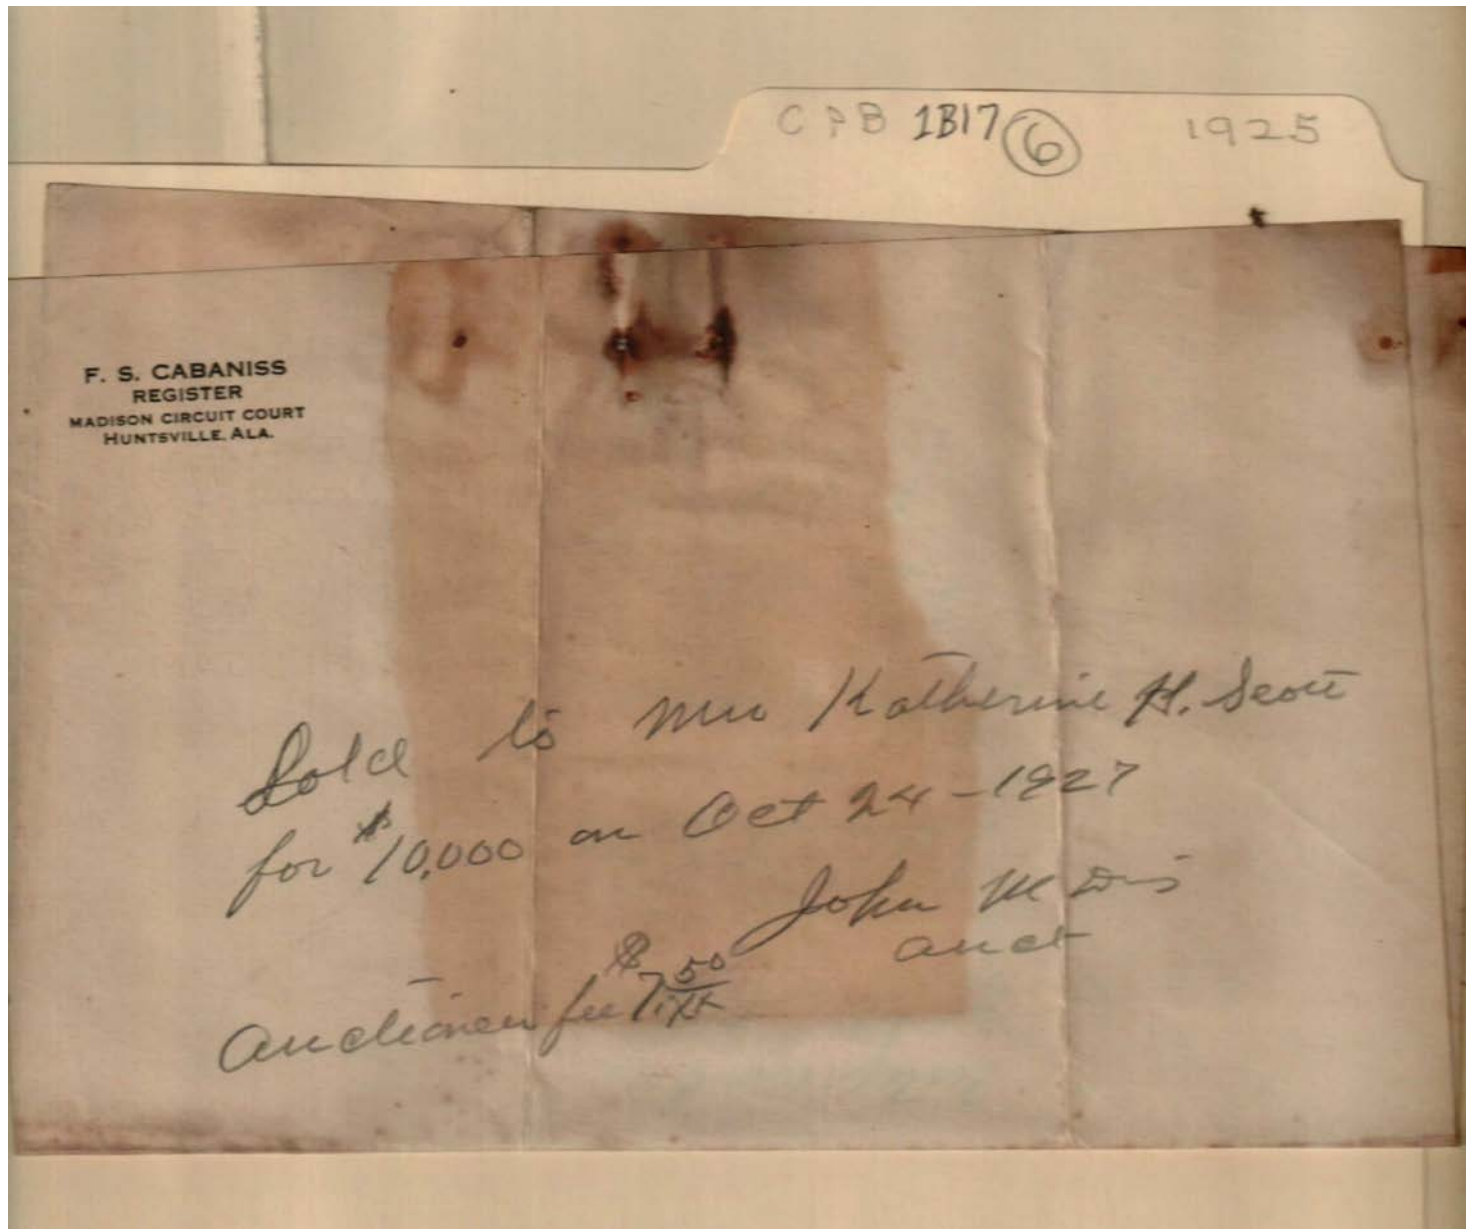 CPB 1B17 6 1925
F. S. CABANISS
REGISTER
MADISON CIRCUIT COURT
HUNTSVILLE, ALA.
Sold to Mrs Katherine H. Scott
for $10,000 on Oct 24-1927
John M
auct
Auctioneer fee $7 50